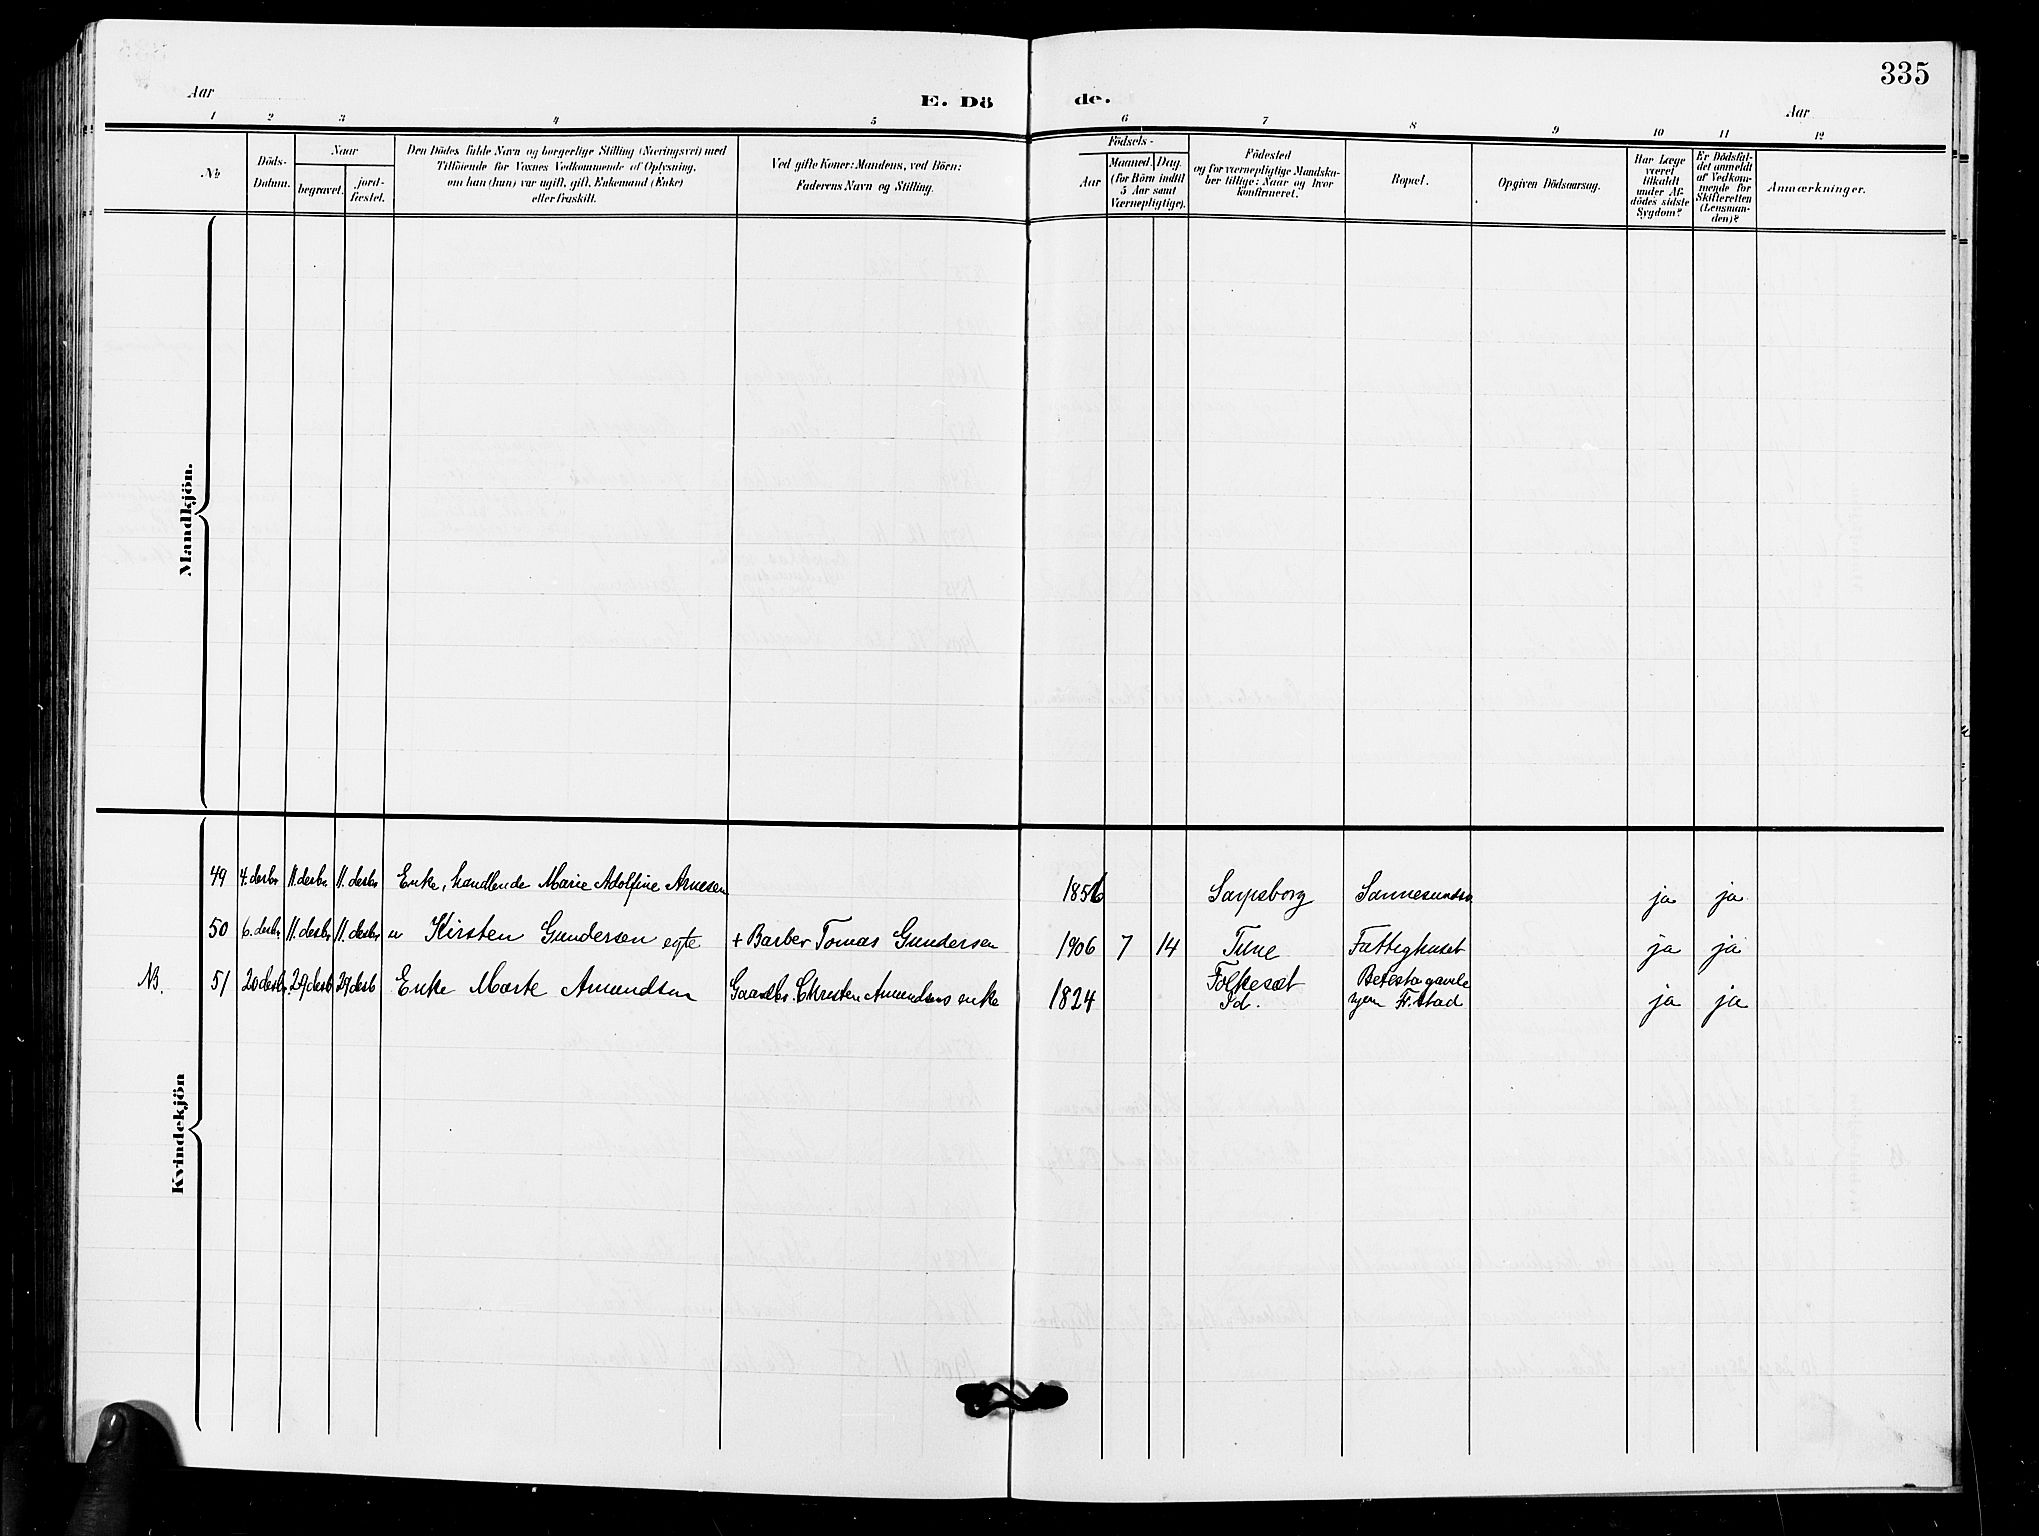 335
Aar
E. Dö de.
Aar
1 2 3 4 5 6 7 8 9 10 11 12
No
Döds-
Datum.
Naar
begravet.
jord-
fæstet.
Den Dödes fulde Navn og borgerlige Stilling (Næringsvei) med
Tilföiende for Voxnes Vedkommende af Oplysning,
om han (hun) var ugift, gift, Enkemand (Enke)
eller fraskilt.
Ved gifte Koner: Mandens, ved Börn:
Faderens Navn og Stilling.
Födsels-
Aar
Maaned.
Dag.
(for Börn indtil
5 Aar samt
Værnepligtige).
Födested
og for værnepligtige Mandska-
ber tillige: Naar og hvor
konfirmeret.
Bopæl.
Opgiven Dödsaarsag.
Har Læge
været
tilkaldt
under Af-
dödes sidste
Sygdom?
Er Dödsfal-
det anmeldt
af Vedkom-
mende for
Skifteretten
(Lensman-
den)?
Anmærkninger.
Mandkjön.
49 4. desbr 11. desbr. 11. desbr Enke, handlende Marie Adolfine Arnesen 1856 Sarpsborg Sannesund ja ja
50 6. desbr 11. desbr. 11. desbr Kirsten Gundersen egte + Barber Tomas Gundersen 1906 7 14 Tune Fattighuset ja ja
NB. 51 20 desbr. 29 desb 29 desb Enke Marte Amundsen Gaardbr. Christen Amundsens enke 1824 Folkesæt Id. Betesta gamle hjem Fr.stad ja ja
Kvindekjön